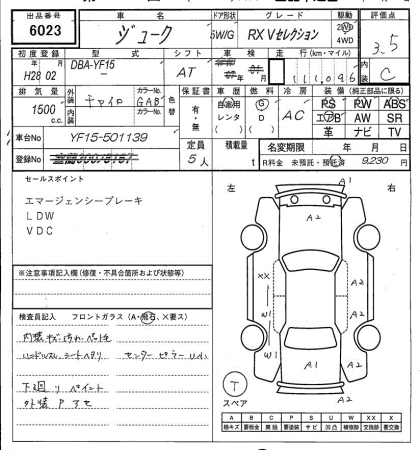 出品番号 車名 ドア形状 グレード 駆動 評価点
6023 ジューク 5W/G RX Vセレクション 2WD 4WD 3.5
初度登録 型式 シフト 車検 走行(km・マイル) 内装 C
H28 02 DBA-YF15 — AT 111,046
排気量 外装 カラーNo. 色替 保証書 車歴 燃料 冷房 装備(純正部品に限る)
1500 c.c. チャイロ GAB 有・無 自家用 レンタ G D AC PS PW ABS
内装 カラーNo. エアB AW SR
革 ナビ TV
車台No YF15-501139 定員 積載量 名変期限 年 月 日
登録No 5人 t R料金 未預託・預託済 9,230円
セールスポイント
エマージェンシーブレーキ
LDW
VDC
左 右
A1
A2
A2
A2
XX
W1
W1
A1
A1
A2
A2
※注意事項記入欄(修復・不具合箇所および状態等)
検査員記入 フロントガラス(A・飛石、×要ス)
内装キズ汚れ
ハンドルスレ シートヘタリ センターピラー
下廻り ペイント
外装
T
スペア
A B C P S U W X XX ×
線キズ 要板金 腐蝕 要塗装 サビ 凹凸 補修跡 交換跡 要交換